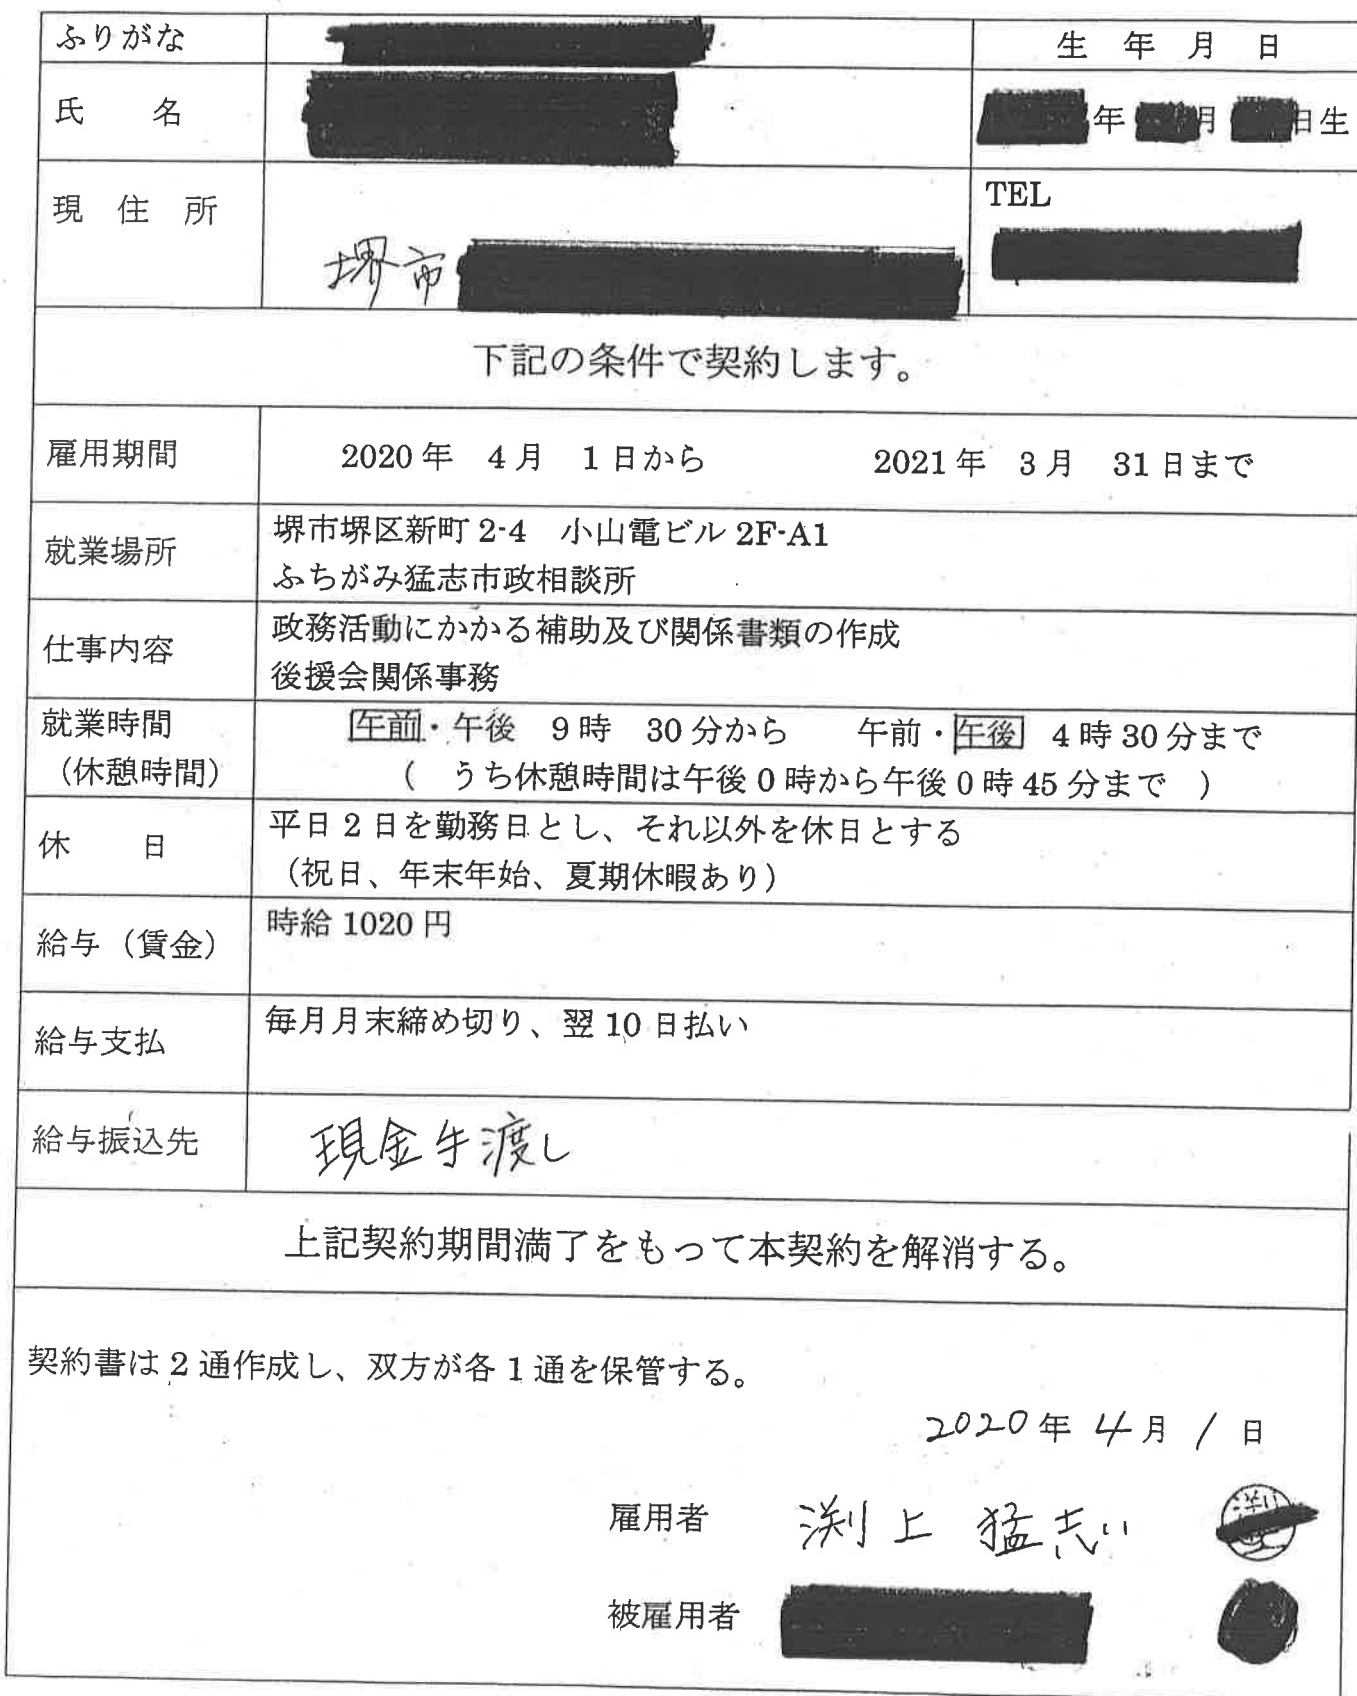 ふりがな
生 年 月 日
氏 名
年 月 日生
現 住 所
堺市
TEL
下記の条件で契約します。
雇用期間
2020年 4月 1日から 2021年 3月 31日まで
就業場所
堺市堺区新町2-4 小山電ビル2F-A1
ふちがみ猛志市政相談所
仕事内容
政務活動にかかる補助及び関係書類の作成
後援会関係事務
就業時間
(休憩時間)
午前・午後 9時 30分から 午前・午後 4時30分まで
( うち休憩時間は午後0時から午後0時45分まで )
休 日
平日2日を勤務日とし、それ以外を休日とする
(祝日、年末年始、夏期休暇あり)
給与(賃金)
時給1020円
給与支払
毎月月末締め切り、翌10日払い
給与振込先
現金手渡し
上記契約期間満了をもって本契約を解消する。
契約書は2通作成し、双方が各1通を保管する。
2020年4月1日
雇用者 渕上 猛志
被雇用者